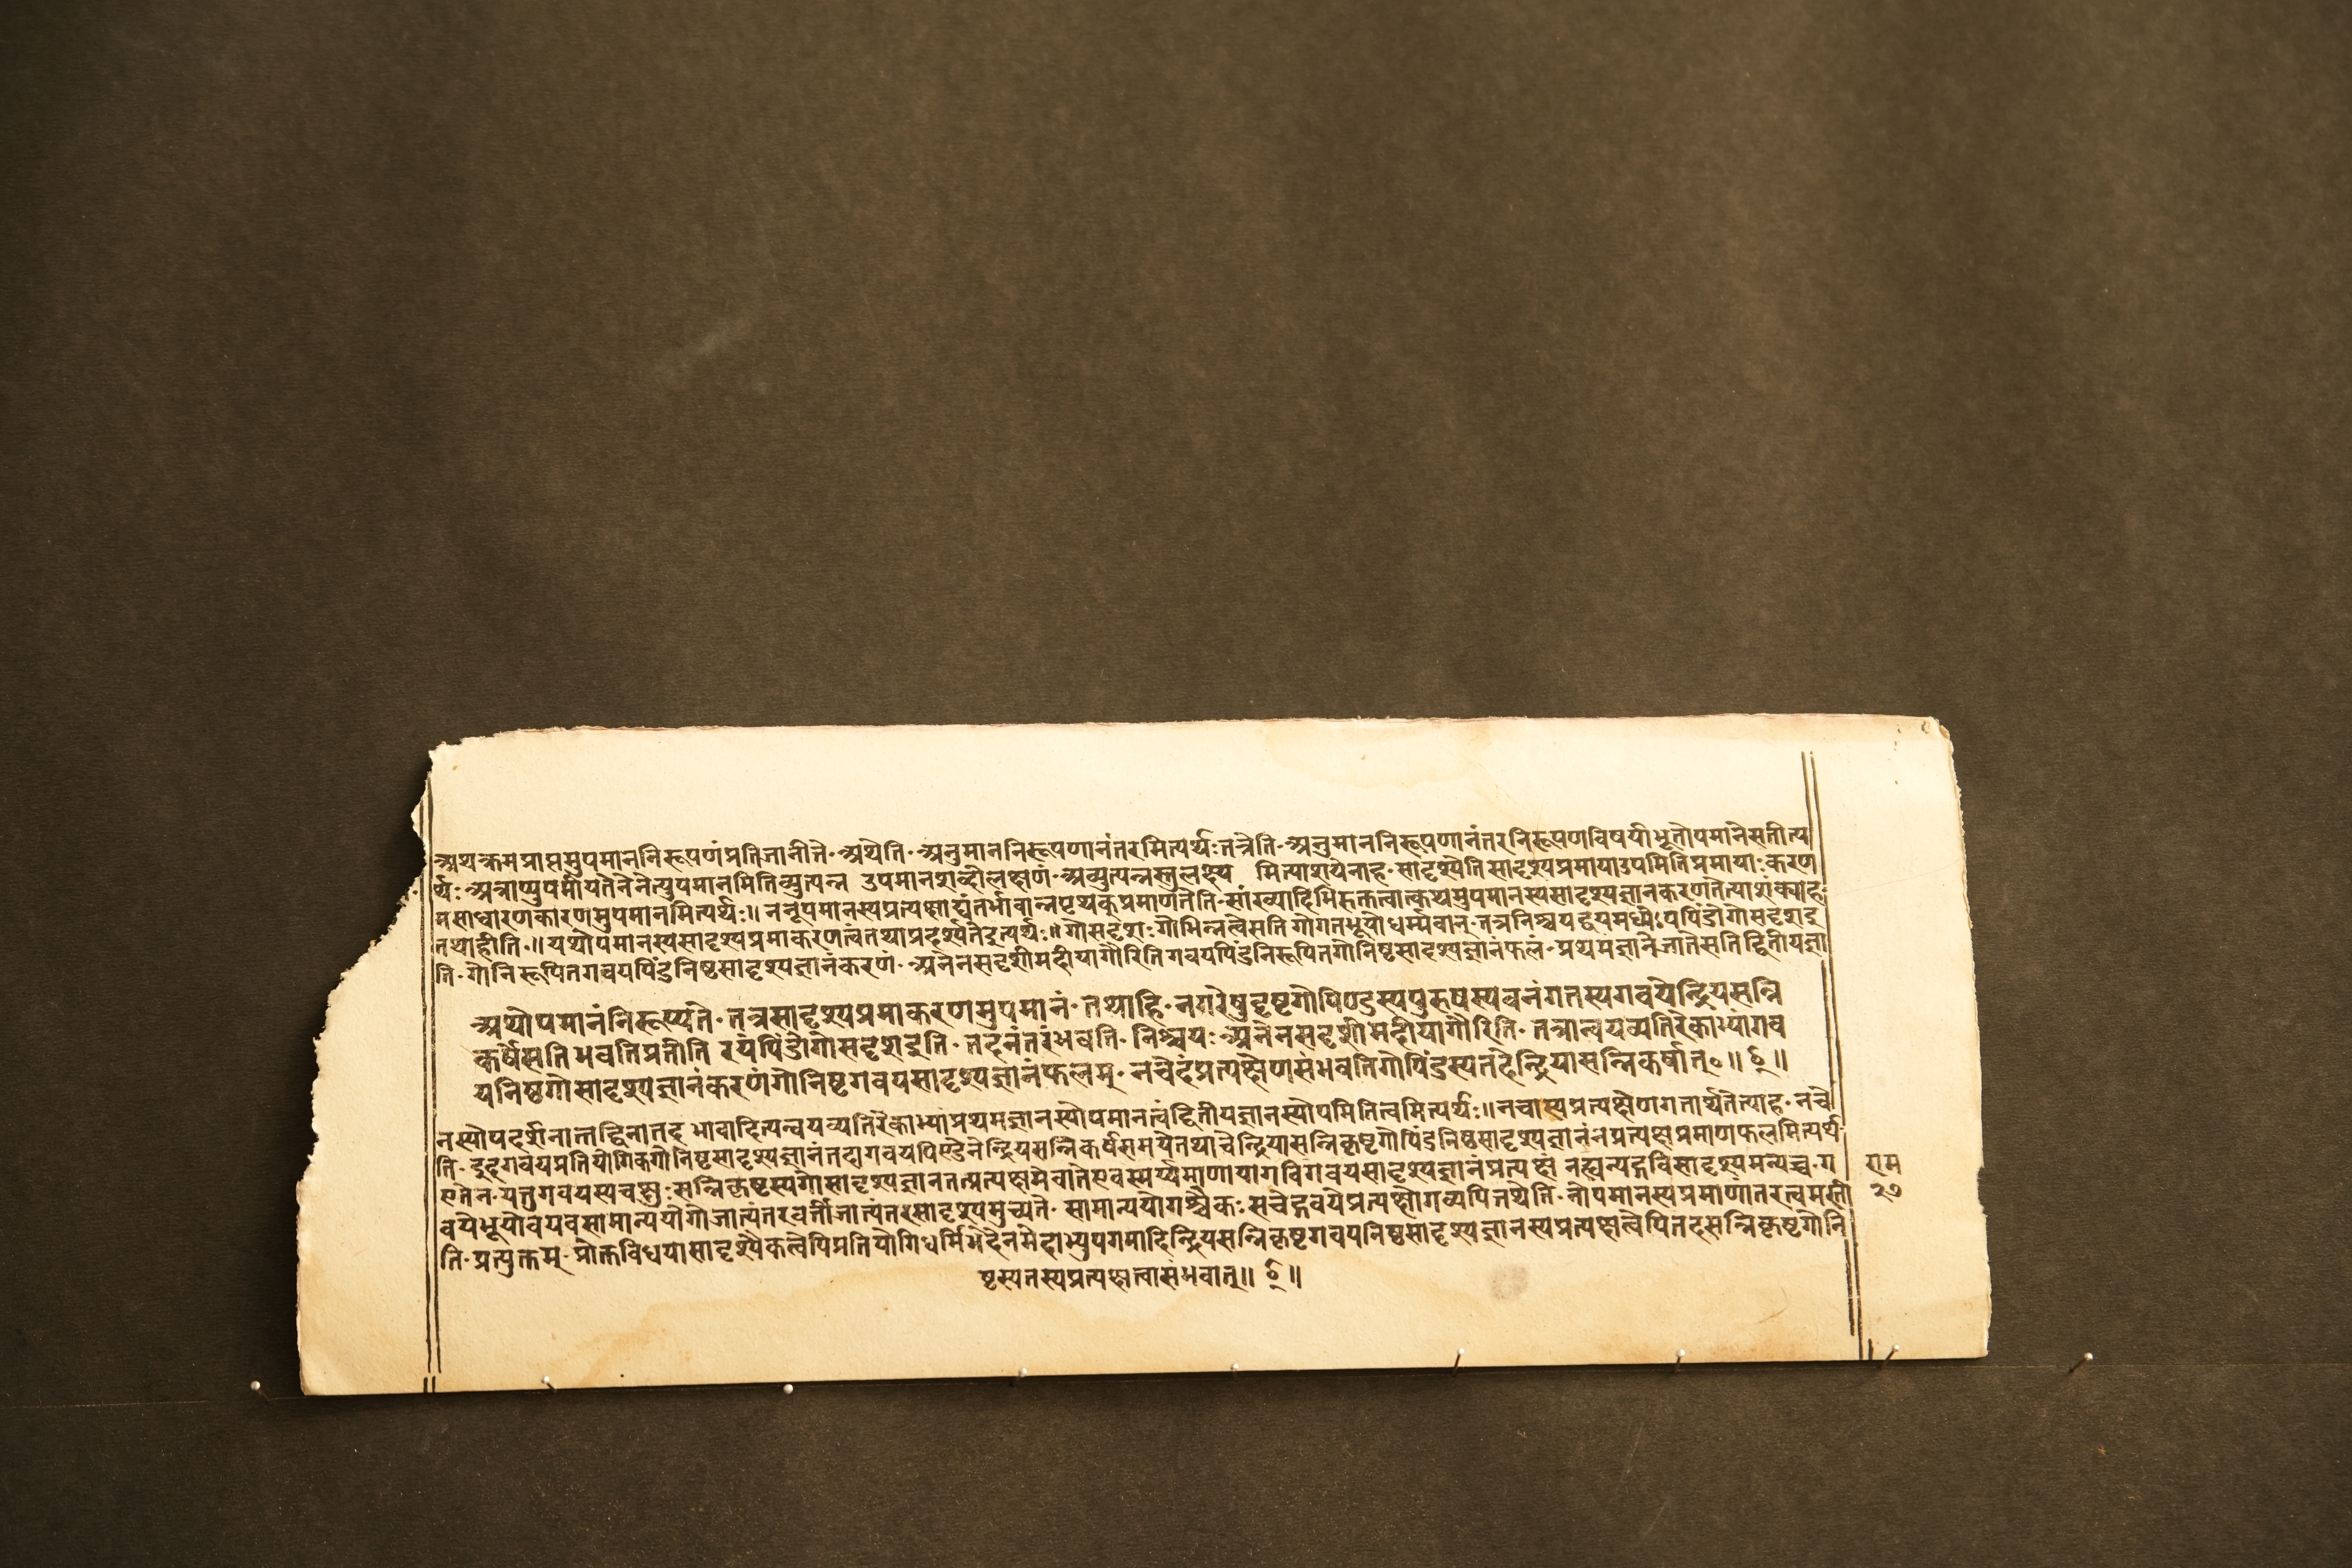 अथक्रमप्राप्तमुपमाननिरूपणंप्रतिजानीते·अथेति·अनुमाननिरूपणानंतरमित्यर्थःतत्रेति·अनुमाननिरूपणानंतरनिरूपणविषयीभूतोपमानेसतीत्य
र्थः·अत्राप्युपमीयतेनेनेत्युपमानमितिव्युत्पन्न उपमानशब्दोलक्षणं·अव्युत्पन्नस्तुलक्ष्य मित्याशयेनाह·सादृश्येतिसादृश्यप्रमायाउपमितिप्रमायाःकरण
मसाधारणकारणमुपमानमित्यर्थः॥ननूपमानस्यप्रत्यक्षाद्यंतर्भावान्नपृथक्प्रमाणतेति·सांख्यादिभिरुक्तत्वात्कथमुपमानस्यसादृश्यज्ञानकरणतेत्याशंक्याह·
तथाहीति·॥यथोपमानस्यसादृश्यप्रमाकरणत्वंतथाप्रदर्श्यतेइत्यर्थः॥गोसदृशःगोभिन्नत्वेसतिगोगतभूयोधर्म्मवान्·तत्रनिश्चयद्वयमध्येऽयंपिंडोगोसदृशइ
ति·गोनिरूपितगवयपिंडनिष्ठसादृश्यज्ञानंकरणं·अनेनसदृशीमदीयागौरितिगवयपिंडनिरूपितगोनिष्ठसादृश्यज्ञानंफलं·प्रथमज्ञानेजातेसतिद्वितीयज्ञा
अथोपमानंनिरूप्यते·तत्रसादृश्यप्रमाकरणमुपमानं·तथाहि·नगरेषुदृष्टगोपिण्डस्यपुरुषस्यवनंगतस्यगवयेन्द्रियसन्नि
कर्षेसतिभवतिप्रतीति रयंपिंडोगोसदृशइति·तदनंतरंभवति·निश्चयः·अनेनसदृशीमदीयागौरिति·तत्रान्वयव्यतिरेकाभ्यांगव
यनिष्ठगोसादृश्यज्ञानंकरणंगोनिष्ठगवयसादृश्यज्ञानंफलम्·नचेदंप्रत्यक्षेणसंभवतिगोपिंडस्यतदेन्द्रियासन्निकर्षात्०॥ ६ ॥
नस्योपदर्शनात्तद्विनातदभावादित्यन्वयव्यतिरेकाभ्यांप्रथमज्ञानस्योपमानत्वंद्वितीयज्ञानस्योपमितित्वमित्यर्थः॥नचास्यप्रत्यक्षेणगतार्थतेत्याह·नचे
ति·इहगवयप्रतियोगिकगोनिष्ठसादृश्यज्ञानंतदागवयपिण्डेनेन्द्रियसन्निकर्षसमयेतथाचेन्द्रियासन्निकृष्टगोपिंडनिष्ठसादृश्यज्ञानंनप्रत्यक्षप्रमाणफलमित्यर्थ
एतेन·यत्तुगवयस्यचक्षुःसन्निकृष्टस्यगोसादृश्यज्ञानंतत्प्रत्यक्षमेवातेएवस्मर्य्यमाणायांगविगवयसादृश्यज्ञानंप्रत्यक्षं नह्यन्यद्गविसादृश्यमन्यच्च·ग
वयेभूयोवयवसामान्ययोगोजात्यंतरवर्त्तीजात्यंतरेसादृश्यमुच्यते·सामान्ययोगश्चैकःसचेद्गवयेप्रत्यक्षोगव्यपितथेति·नोपमानस्यप्रमाणांतरत्वमस्ती
ति·प्रत्युक्तम्·प्रोक्तविधयासादृश्यैकत्वेपिप्रतियोगिधर्मिभेदेनभेदाभ्युपगमादिन्द्रियसन्निकृष्टगवयनिष्ठसादृश्यज्ञानस्यप्रत्यक्षत्वेपितदसन्निकृष्टगोनि
ष्ठस्यतस्यप्रत्यक्षत्वासंभवात्॥ ६ ॥
राम
२७